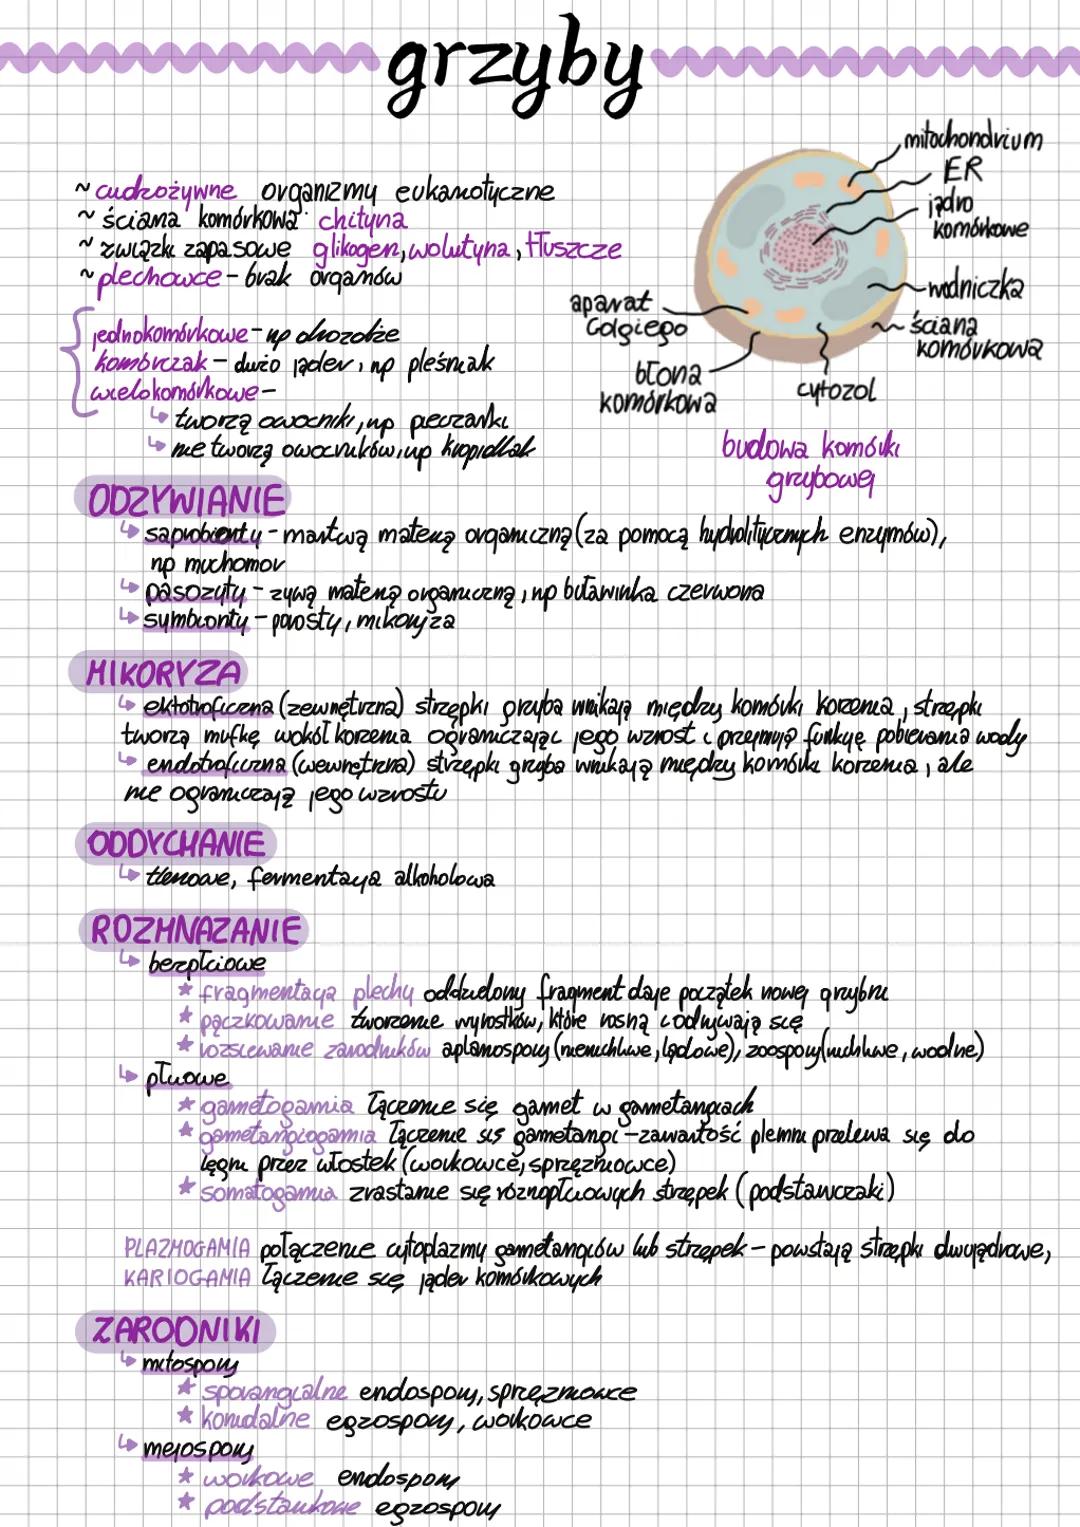 grzyby
~ cudzożywne organizmy eukariotyczne
~ ściana komórkowa: chityna
~ związki zapasowe glikogen, wolutyna, tłuszcze
~ plechowce - brak organów
jednokomórkowe - np drożdże
komórczak - dużo jąder, np pleśniak
wielokomórkowe -
tworzą owocniki, np pieczarki
nie tworzą owocników, np kropidlak
mitochondrium
ER
jądro
komórkowe
wodniczka
ściana
komórkowa
cytozol
błona
komórkowa
aparat
Golgiego
budowa komórki
grzybowej
ODŻYWIANIE
saprobionty - martwą materią organiczną (za pomocą hydrolitycznych enzymów),
np muchomor
pasożyty - żywą materią organiczną, np buławinka czerwona
symbionty - porosty, mikoryza
MIKORYZA
ektotroficzna (zewnętrzna) strzępki grzyba wnikają między komórki korzenia, strzępki
tworzą mufkę wokół korzenia ograniczając jego wzrost i przejmują funkcję pobierania wody
endotroficzna (wewnętrzna) strzępki grzyba wnikają między komórki korzenia, ale
nie ograniczają jego wzrostu
ODDYCHANIE
tlenowe, fermentacja alkoholowa
ROZMNAŻANIE
bezpłciowe
fragmentacja plechy oddzielony fragment daje początek nowej grzybni
pączkowanie tworzenie wyrostków, które rosną i odrywają się
rozsiewanie zarodników aplanospory (nieruchliwe, lądowe), zoospory (ruchliwe, wodne)
płciowe
gametogamia łączenie się gamet w gametangiach
gametangiogamia łączenie się gametangi - zawartość plemni przelewa się do
lęgni przez włostek (workowce, sprzężniowce)
somatogamia zrastanie się różnopłciowych strzępek (podstawczaki)
PLAZMOGAMIA połączenie cytoplazmy gametangiów lub strzępek - powstają strzępki dwujądrowe,
KARIOGAMIA łączenie się jąder komórkowych
ZARODNIKI
mitospory
sporangialne endospory, sprzężniowce
konidialne egzospory, workowce
mejospory
workowe endospory
podstawkowe egzospory